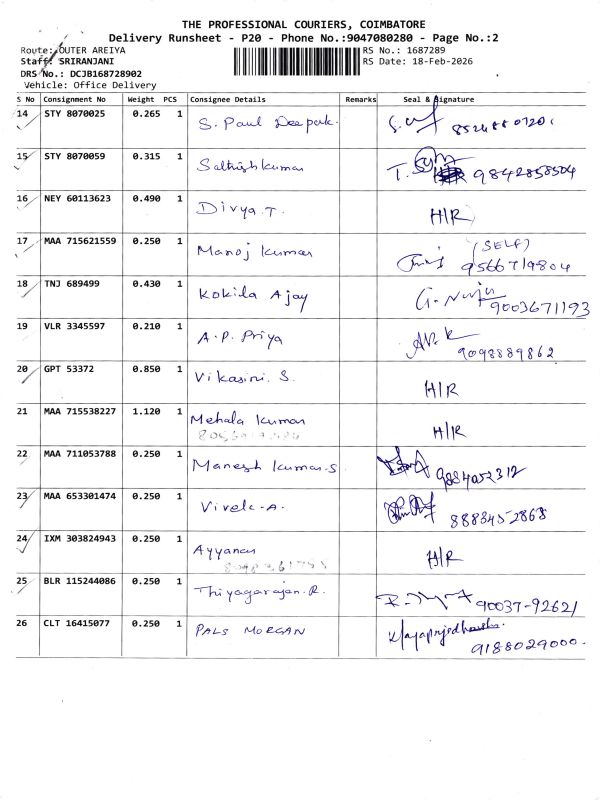 THE PROFESSIONAL COURIERS, COIMBATORE
Delivery Runsheet - P20 - Phone No.:9047080280 - Page No.:2
Route: OUTER AREIYA
RS No.: 1687289
Staff: SRIRANJANI
RS Date: 18-Feb-2026
DRS No.: DCJB168728902
Vehicle: Office Delivery
S No Consignment No Weight PCS Consignee Details Remarks Seal & Signature
14 STY 8070025 0.265 1 S. Paul Deepak.
15 STY 8070059 0.315 1 Sathishkumar 9842858504
16 NEY 60113623 0.490 1 Divya.T. H/R
17 MAA 715621559 0.250 1 Manoj kumar (SELF)
9566719804
18 TNJ 689499 0.430 1 Kokila Ajay 9003671193
19 VLR 3345597 0.210 1 A.P. Priya
9098889862
20 GPT 53372 0.850 1 Vikasini. S. H/R
21 MAA 715538227 1.120 1 Mehala kumar H/R
22 MAA 711053788 0.250 1 Manesh kumar.s 9884052312
23 MAA 653301474 0.250 1 Vivek-A. 8883452868
24 IXM 303824943 0.250 1 Ayyanar H/R
25 BLR 115244086 0.250 1 Thiyagarajan.R. 90037-92621
26 CLT 16415077 0.250 1 PALS MORGAN
9188029000.